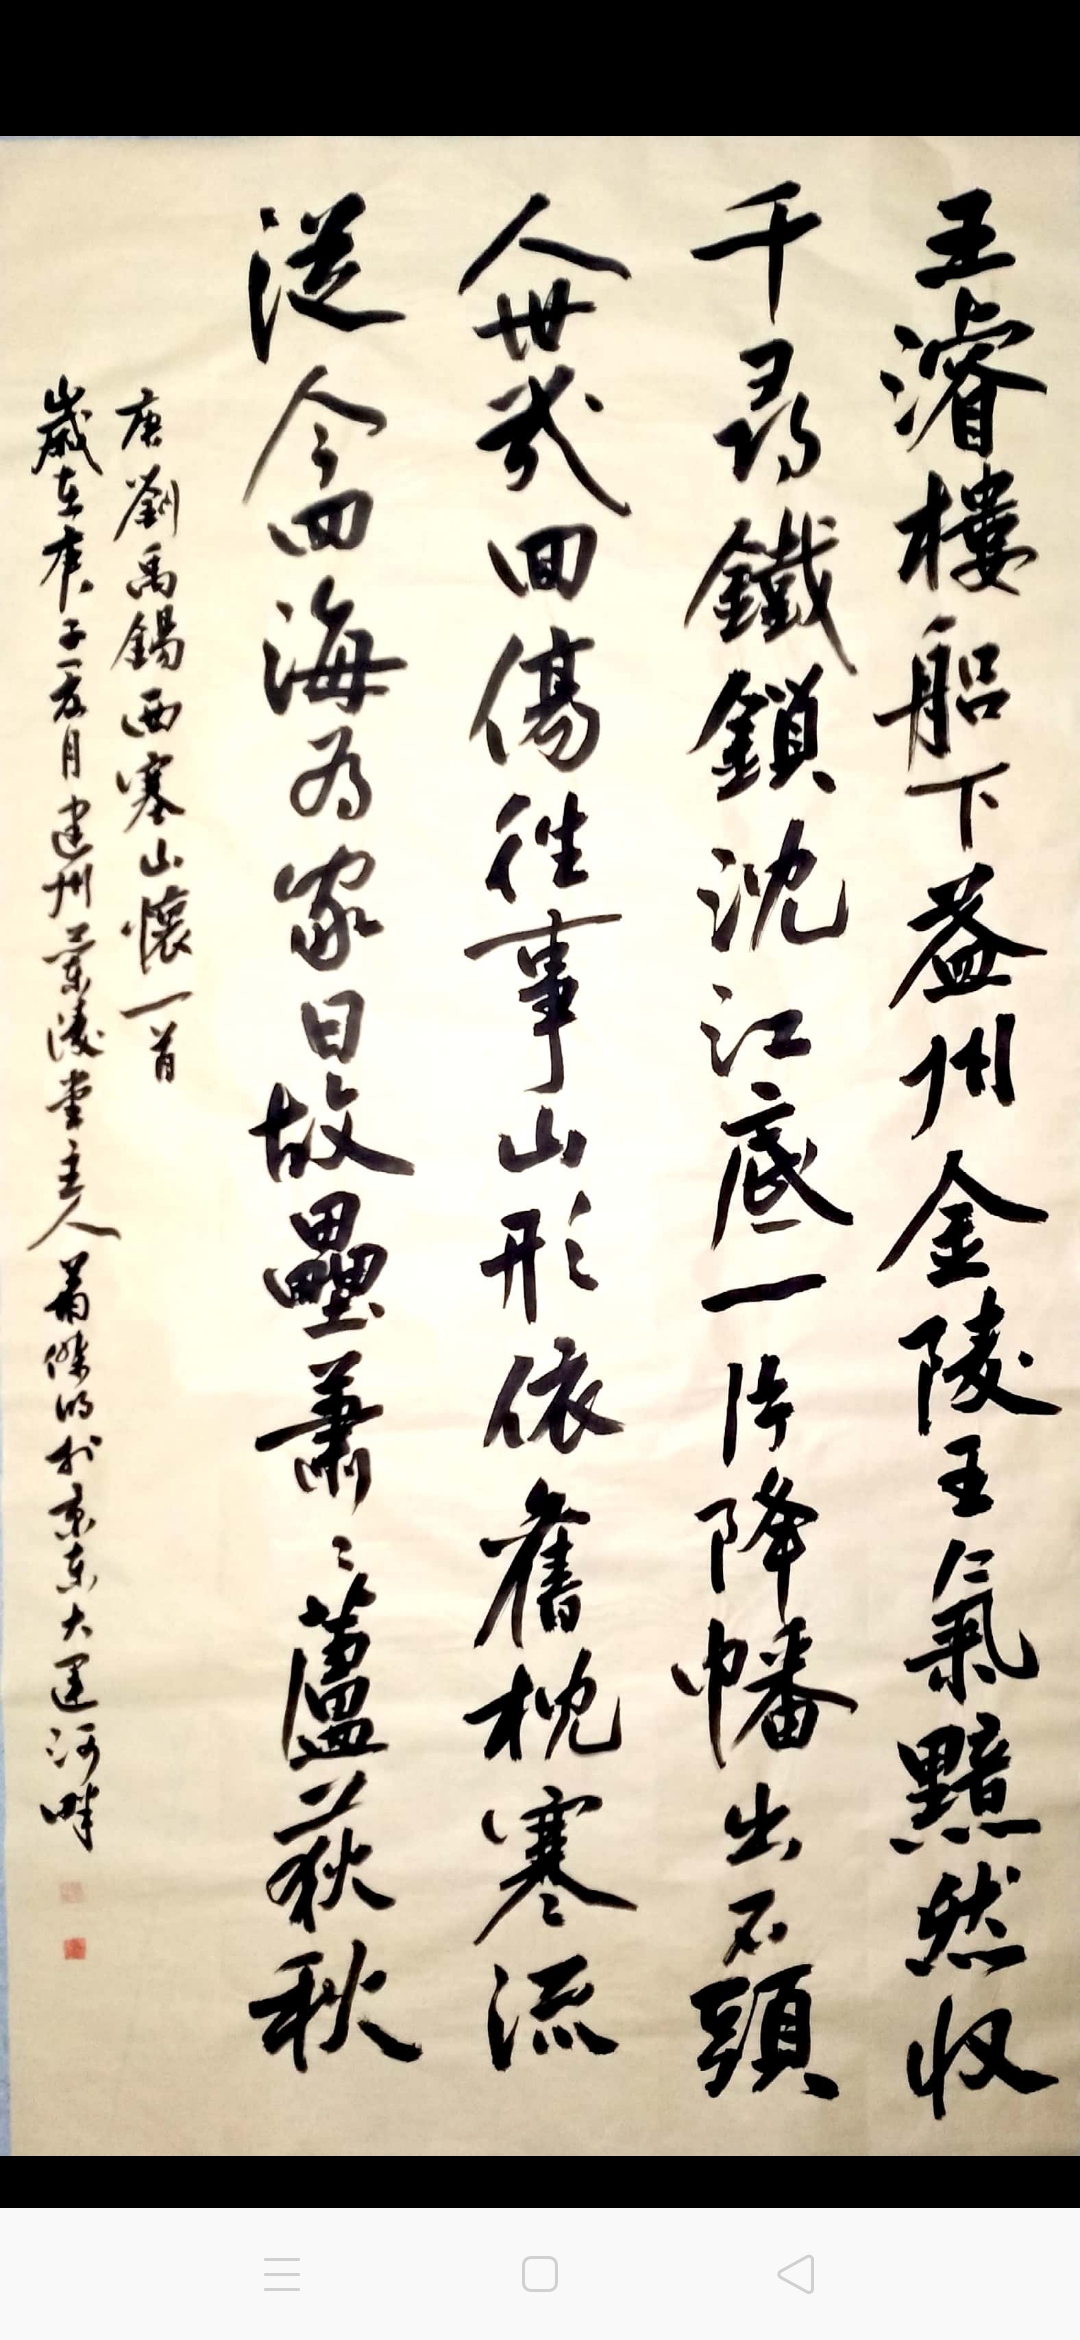 王濬樓船下益州金陵王氣黯然收
千尋鐵鎖沈江底一片降幡出石頭
人世幾回傷往事山形依舊枕寒流
從今四海為家日故壘蕭〻蘆荻秋
唐劉禹錫西塞山懷一首
歲在庚子一月建州蘭陵堂主人蕭傑明於京東大運河畔